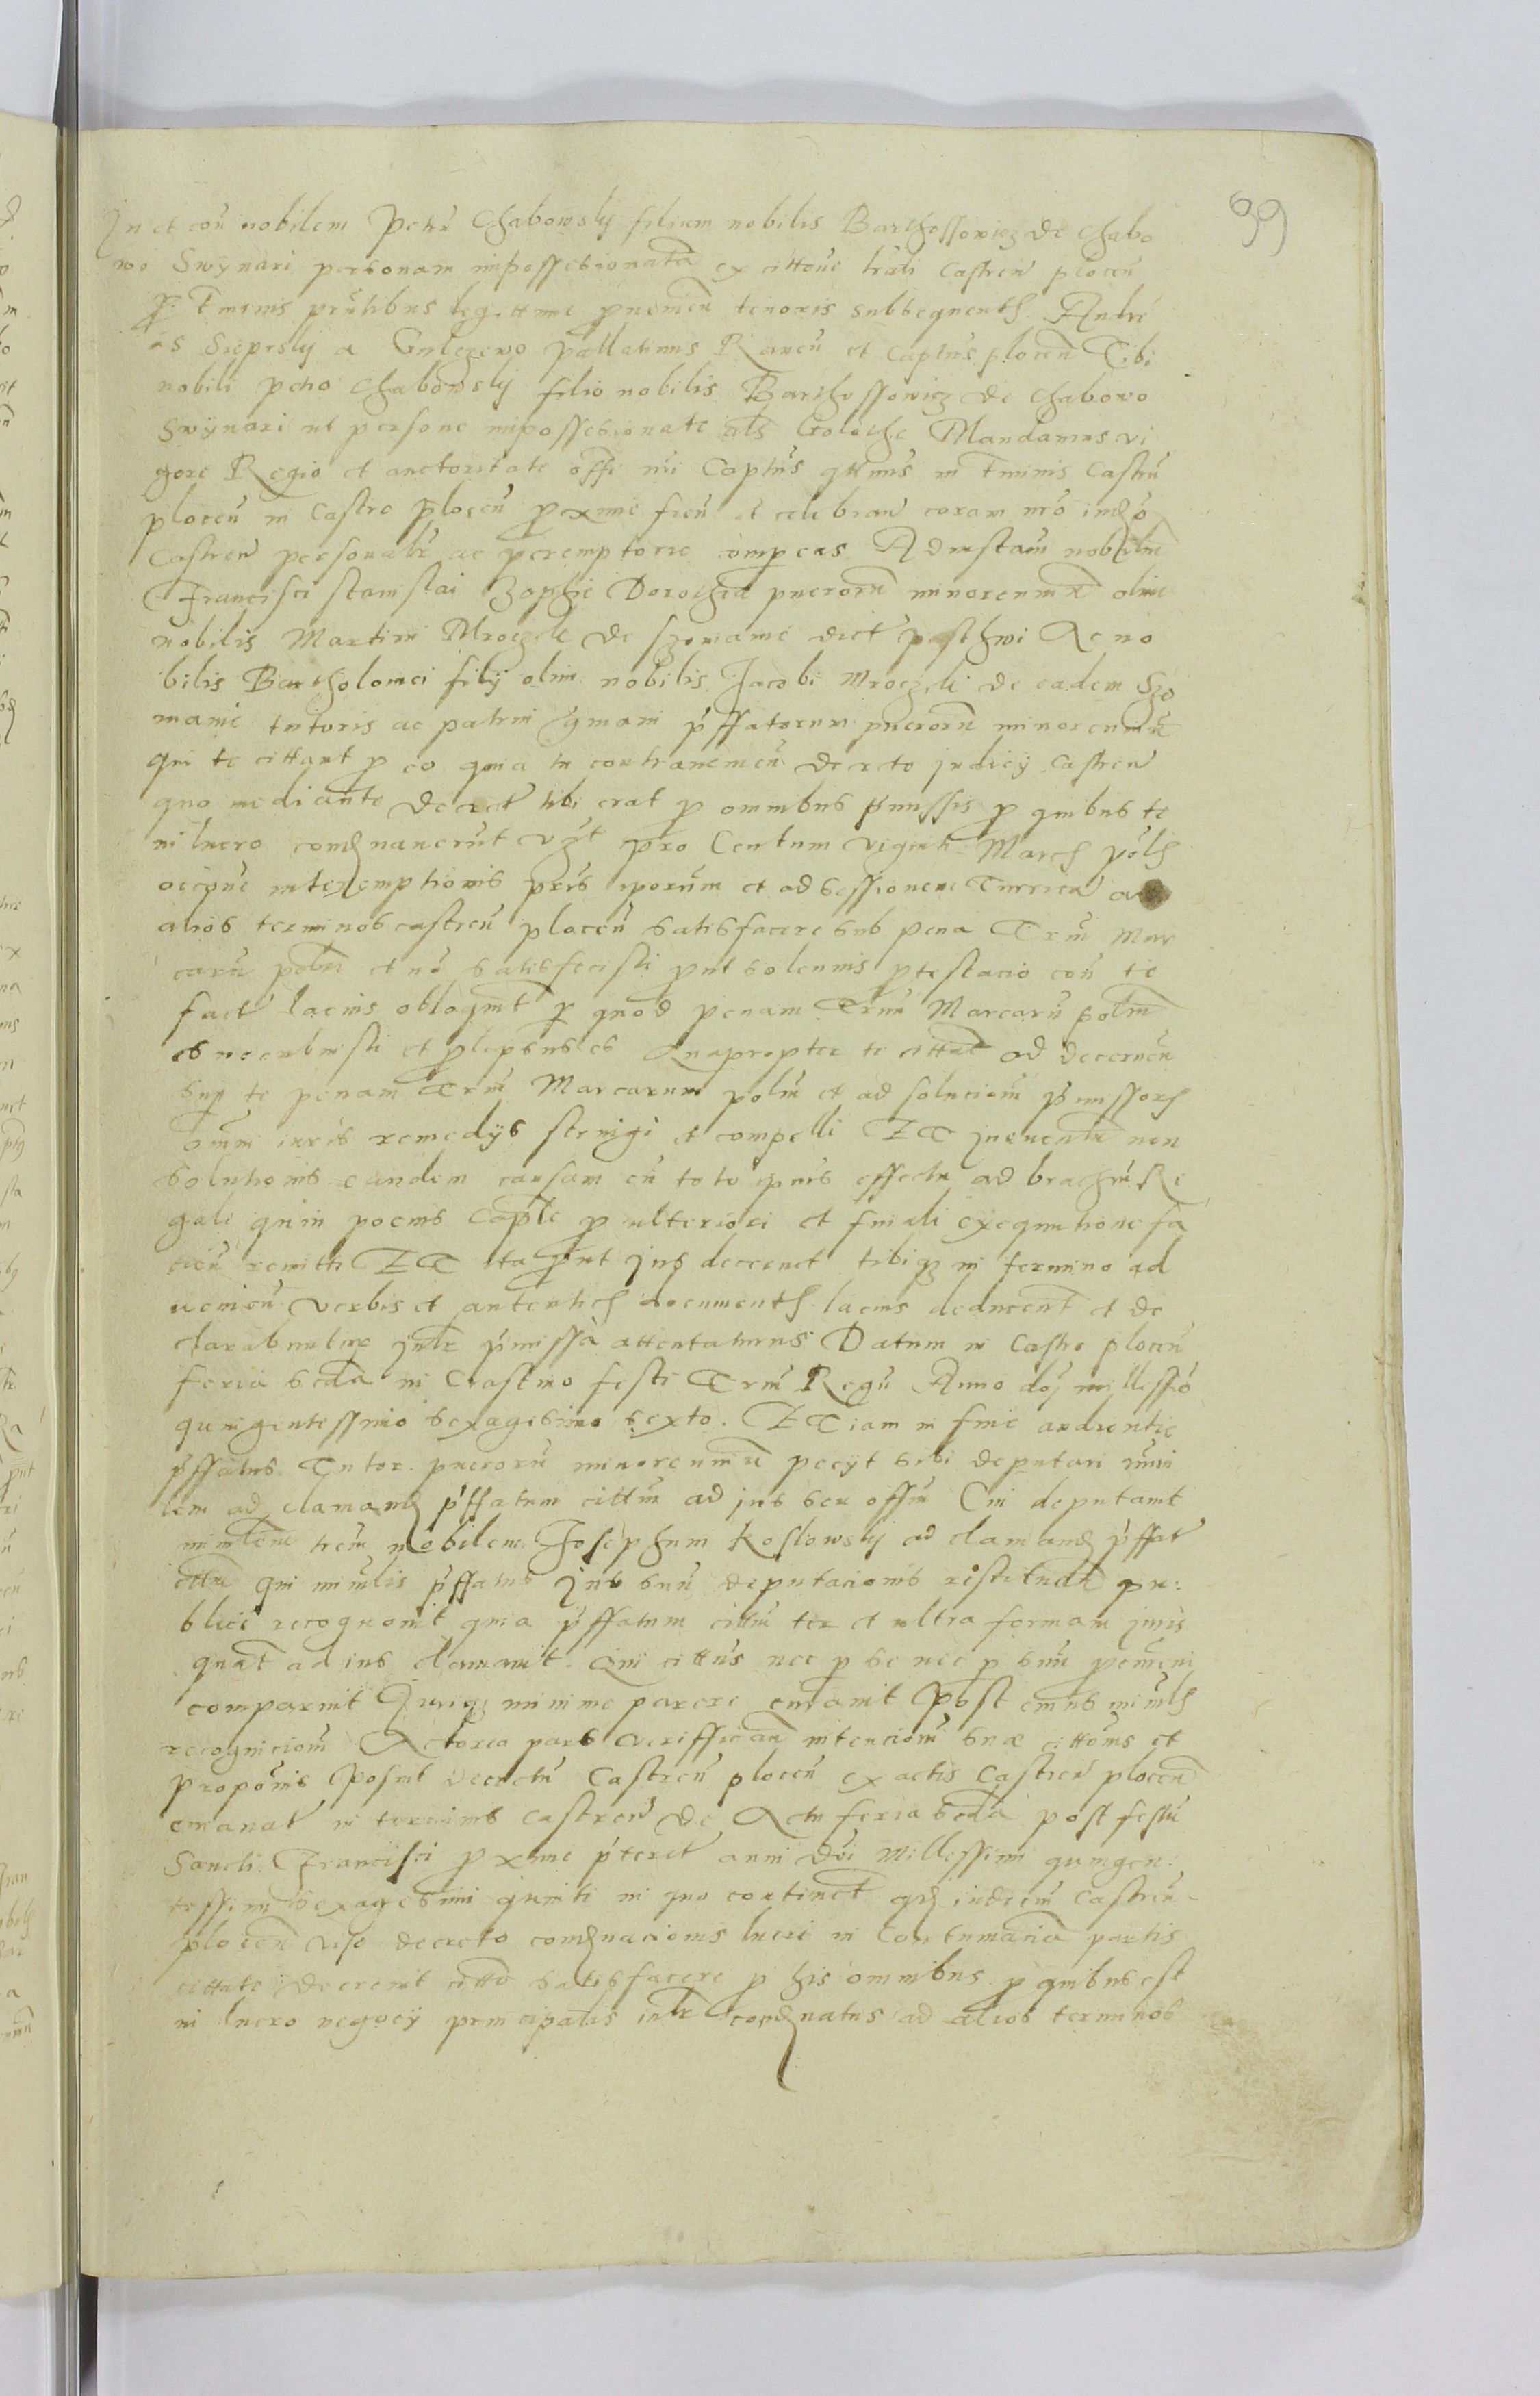 99
In et con nobilem Petru Chabowsky filium nobilis Barthossowicz de Chabo
wo Swynari personam impossessionatã ex cittõne lrãli Castren plocen
tminis pntibus legittime provenien tenoris subsequentis. Andre
as Sieprsky a Gulczewo pallatinus Raven et Captus plocen Tibi
nobili petro Chabowsky filio nobilis Barthossowicz de Chabowo
Swynari ut persone impossessionate als Golothe Mandamus vi
gore Regio et auctoritate offi nri Captus qttnus in tminis Castrn
plocen in Castro plocen proxime fien et celebran coram nro
Castren personalr ac peremptorie compeas Ad instam nobilm
Francisci Stanislai Zophie Dorothea puerorũ minorennũ olim
nobilis Martini Mroczek de Szomanie dict paschwi Ac no
bilis Bartholomei filij olim nobilis Jacobi Mroczek de eadem Szo
manie tutoris ac patrui gmani pffatorum puerorũ minorennũ
qui te cittant p eo quia tu contravenien decreto judicij Castren
quo mediante decret tibi erat p omnibus pmissis p quibus te
in lucro condnaverut vzt pro Centum viginti March polh
occone interemptionis pris iporum et ad sessionem Turrien ad
alios terminos castren plocen satisfacere sub pena Triu Mar
caru polm et no satisfecisti put solennis ptestacio con te
fact lacius obloqnt p quod penam Trium Marcaru polm
es nocubuisti et plepsus es Quapropter te cittat ad decernen
sup te penam Triu Marcarum polm et ad solucion pmissorh
omni iuris remedijs stringi et compelli ET in eventu non
solutionis eandem causam cu toto ipius effectu ad brachiu Re
gale quin poenis Caple p ulteriori et finali exequutione fa
cien remitti ET ita put jus decernet tibiqz in termino ad
venien verbis et autentich documenth lacius deducent et de
clarabuntur julr pmissa attentaturus Datum in Castro plocen
feria scda in Crastino festi Triu Regu Anno doj millessio
quingentessimo sexagesimo sexto. ET iam in fine audientie
pffatus Tutor puerorũ minorenniũ pecijt sibi deputari mini
lem ad clamand pffatum cittm ad jus seu offm Cui deputamt
mintem trem nobilem Josephum Koslowsky ad clamand pffat
cttm qui minlis pffatus jus suu deputacionis restituat pu:
blici recognovit quia pffatum cittm ter et ultra formam juris
quat ad ius clamavit. Qui cittus nec p se nec p suu pcureni
comparuit Juriqz minime parere curavit Post cuius minlis
recognicionm Actorea pars veriffican intencionm sue cittonis et
proponis Posuit decretu Castren plocen ex actis Castren plocen
emanat in terminis castren de Actu feria scda post festu
Sancti Francisci proxime pterit anni Dni Millessimi quingen:
tessimi sexagesimi quinti in quo continet qd iudciũ Castren
plocen viso decreto condnacionis lucri in Contumacia partis
cittate decrevit citto satisfacere p his omnibus p quibus est
in lucro negocij principalis inlr condnatus ad alios terminos